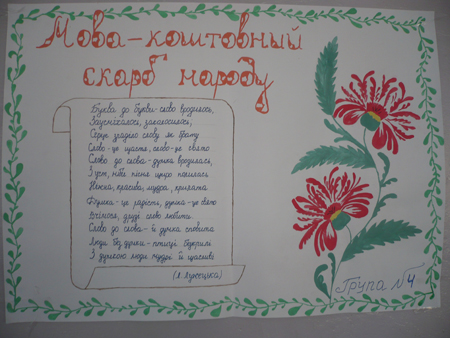 Мова - коштовний
скарб народу
Буква до букви - слово вродилось,
Засміялося, заголосилося,
Серце зраділо слову як
Слово - це щастя, слово - це свято
Слово до слова - думка вродилась,
З уст, ніби пісня щиро полилась
Ніжна, красива, мудра, крилата
Думка - це радість, думка - це свято
Вчімося, друзі слово любити.
Слово до слова - й думка сповита
Люди без думки - птиці безкрилі
З думкою люди мудрі й щасливі
Група №4